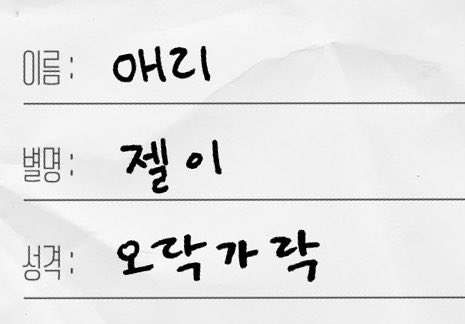 이름 : 애리
별명 : 젤이
성격 : 오락가락